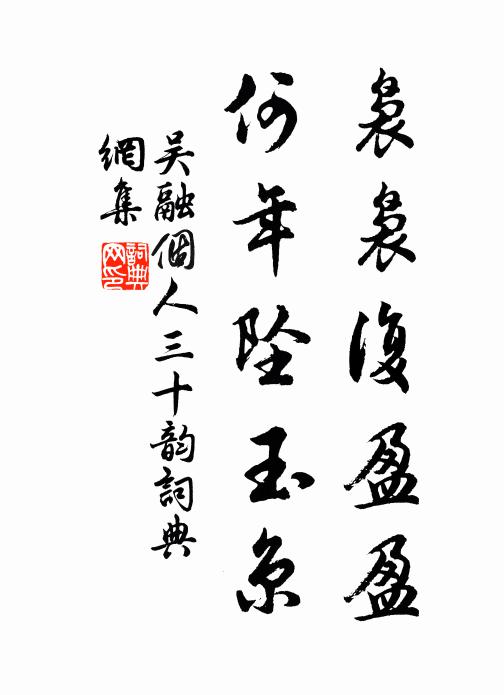 裊裊復盈盈
何年墜玉京
吴融個人三十韵詞典
網集
詞典网印